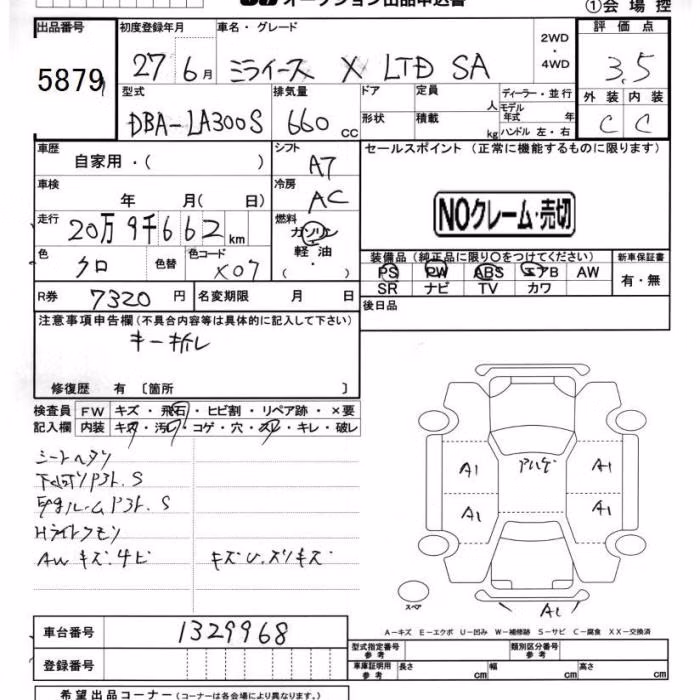 オークション出品申込書
①会場控
出品番号
5879
初度登録年月
27 6月
車名・グレード
ミライース X LTD SA
2WD
・
4WD
評価点
3.5
外装 内装
C C
型式
DBA-LA300S
排気量
660 CC
ドア
形状
定員
人
積載
kg
ディーラー・並行
モデル年式 年
ハンドル 左・右
車歴
自家用・( )
シフト
A7
セールスポイント (正常に機能するものに限ります)
NOクレーム・売切
車検
年 月( 日)
冷房
AC
走行
20万9千662 km
燃料
ガソリン
軽油
・
色
クロ
色替
色コード
X07
装備品 (純正品に限り○をつけてください)
PS PW ABS エアB AW
SR ナビ TV カワ
新車保証書
有・無
R券 7320 円
名変期限 月 日
後日品
注意事項申告欄(不具合内容等は具体的に記入して下さい)
キーキレ
修復歴 有 〔箇所 〕
検査員 FW キズ・飛石・ヒビ割・リペア跡・×要
記入欄 内装 キズ・汚レ・コゲ・穴・スレ・キレ・破レ
シートヘタリ
S
S
Hライトクモリ
AW キズ.サビ キズU.スリキズ
A1 A1
A1 A1
A1
スペア
A-キズ E-エクボ U-凹み W-補修跡 S-サビ C-腐食 XX-交換済
車台番号 1329968
登録番号
型式指定番号 参考
類別区分番号 参考
車庫証明用 参考
長さ cm 幅 cm 高さ cm
希望出品コーナー (コーナーは各会場により異なります。)